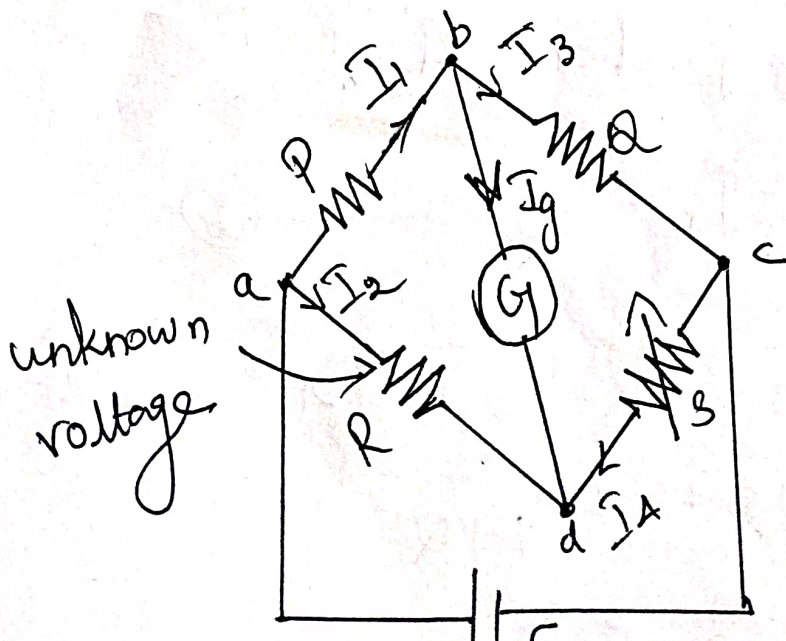 b
I1
I3
P
Q
Ig
a
I2
G
c
unknown
voltage
R
S
d
I4